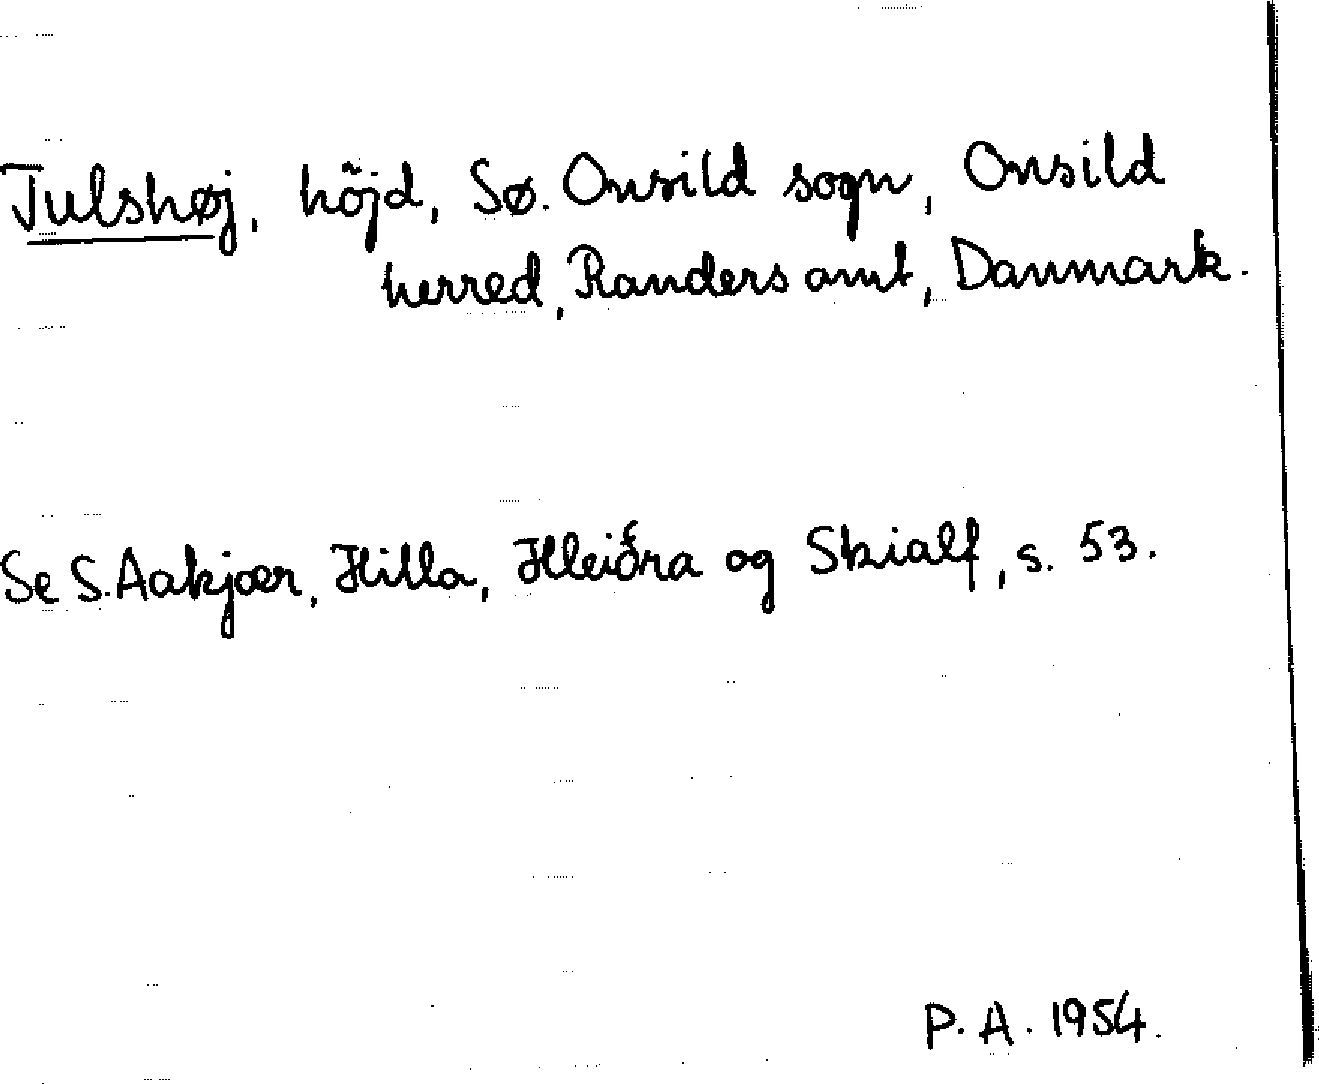 Tulshøj, höjd, Sø. Onsild sogn, Onsild
herred, Randers amt, Danmark.
Se S. Aakjær, Hilla, Hleiðra og Skialf, s. 53.
P. A. 1954.